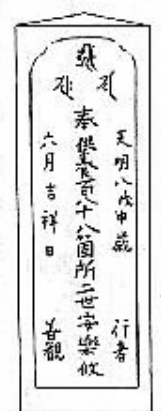 天明八戊申歳　行者
奉供養百八十八箇所二世安樂攸
六月吉祥日　善観